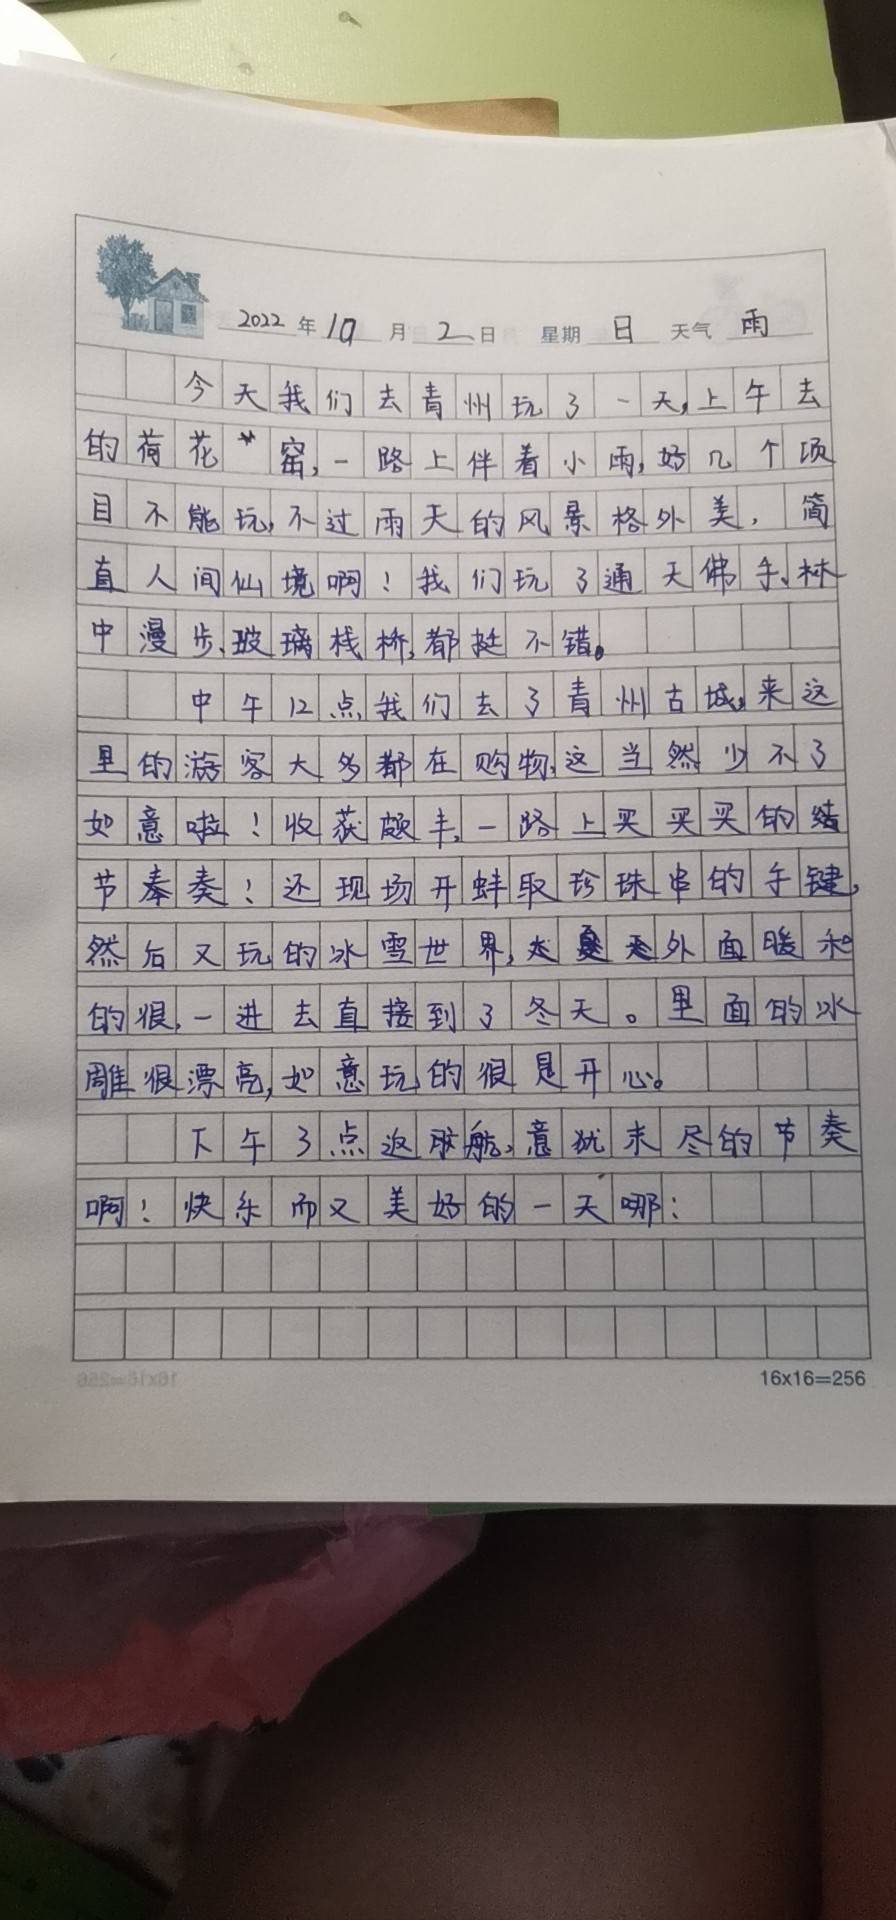 2022年10月2日 星期日 天气雨
今天我们去青州玩了一天,上午去
的荷花窑,一路上伴着小雨,好几个项
目不能玩,不过雨天的风景格外美,简
直人间仙境啊!我们玩了通天佛手、林
中漫步、玻璃栈桥,都挺不错。
中午12点我们去了青州古城,来这
里的游客大多都在购物,这当然少不了
如意啦!收获颇丰,一路上买买买的结
节奏!还现场开蚌取珍珠串的手键,
然后又玩的冰雪世界,外面暖和
的很,一进去直接到了冬天。里面的冰
雕很漂亮,如意玩的很是开心。
下午3点返航,意犹未尽的节奏
啊!快乐而又美好的一天哪!
16x16=256